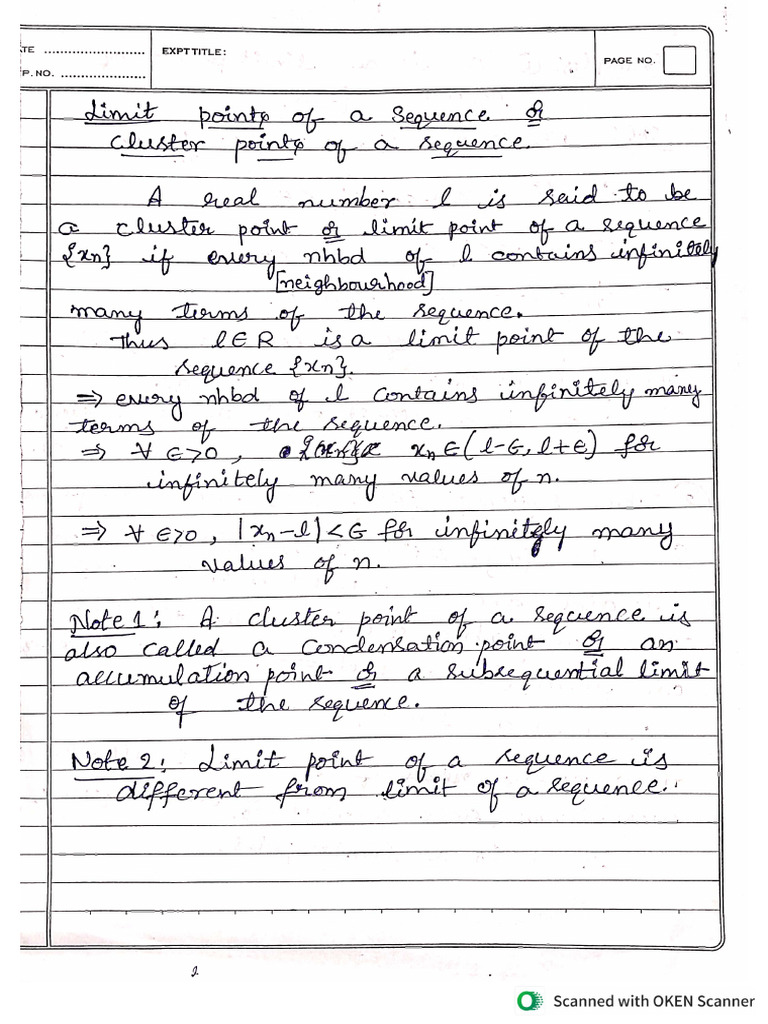 TE ..........................
EXPT TITLE:
PAGE NO.
P. NO. ......................
Limit points of a sequence or
cluster points of a sequence.
A real number l is said to be
a cluster point or limit point of a sequence
{xn} if every nhbd of l contains infinitely
[neighbourhood]
many terms of the sequence.
Thus l∈R is a limit point of the
sequence {xn}.
⇒ every nhbd of l contains infinitely many
terms of the sequence.
⇒ ∀ ∈>0, xn∈(l-∈, l+∈) for
infinitely many values of n.
⇒ ∀ ∈>0, |xn-l|<∈ for infinitely many
values of n.
Note 1: A cluster point of a sequence is
also called a condensation point or an
accumulation point or a subsequential limit
of the sequence.
Note 2: Limit point of a sequence is
different from limit of a sequence.
2
Scanned with OKEN Scanner